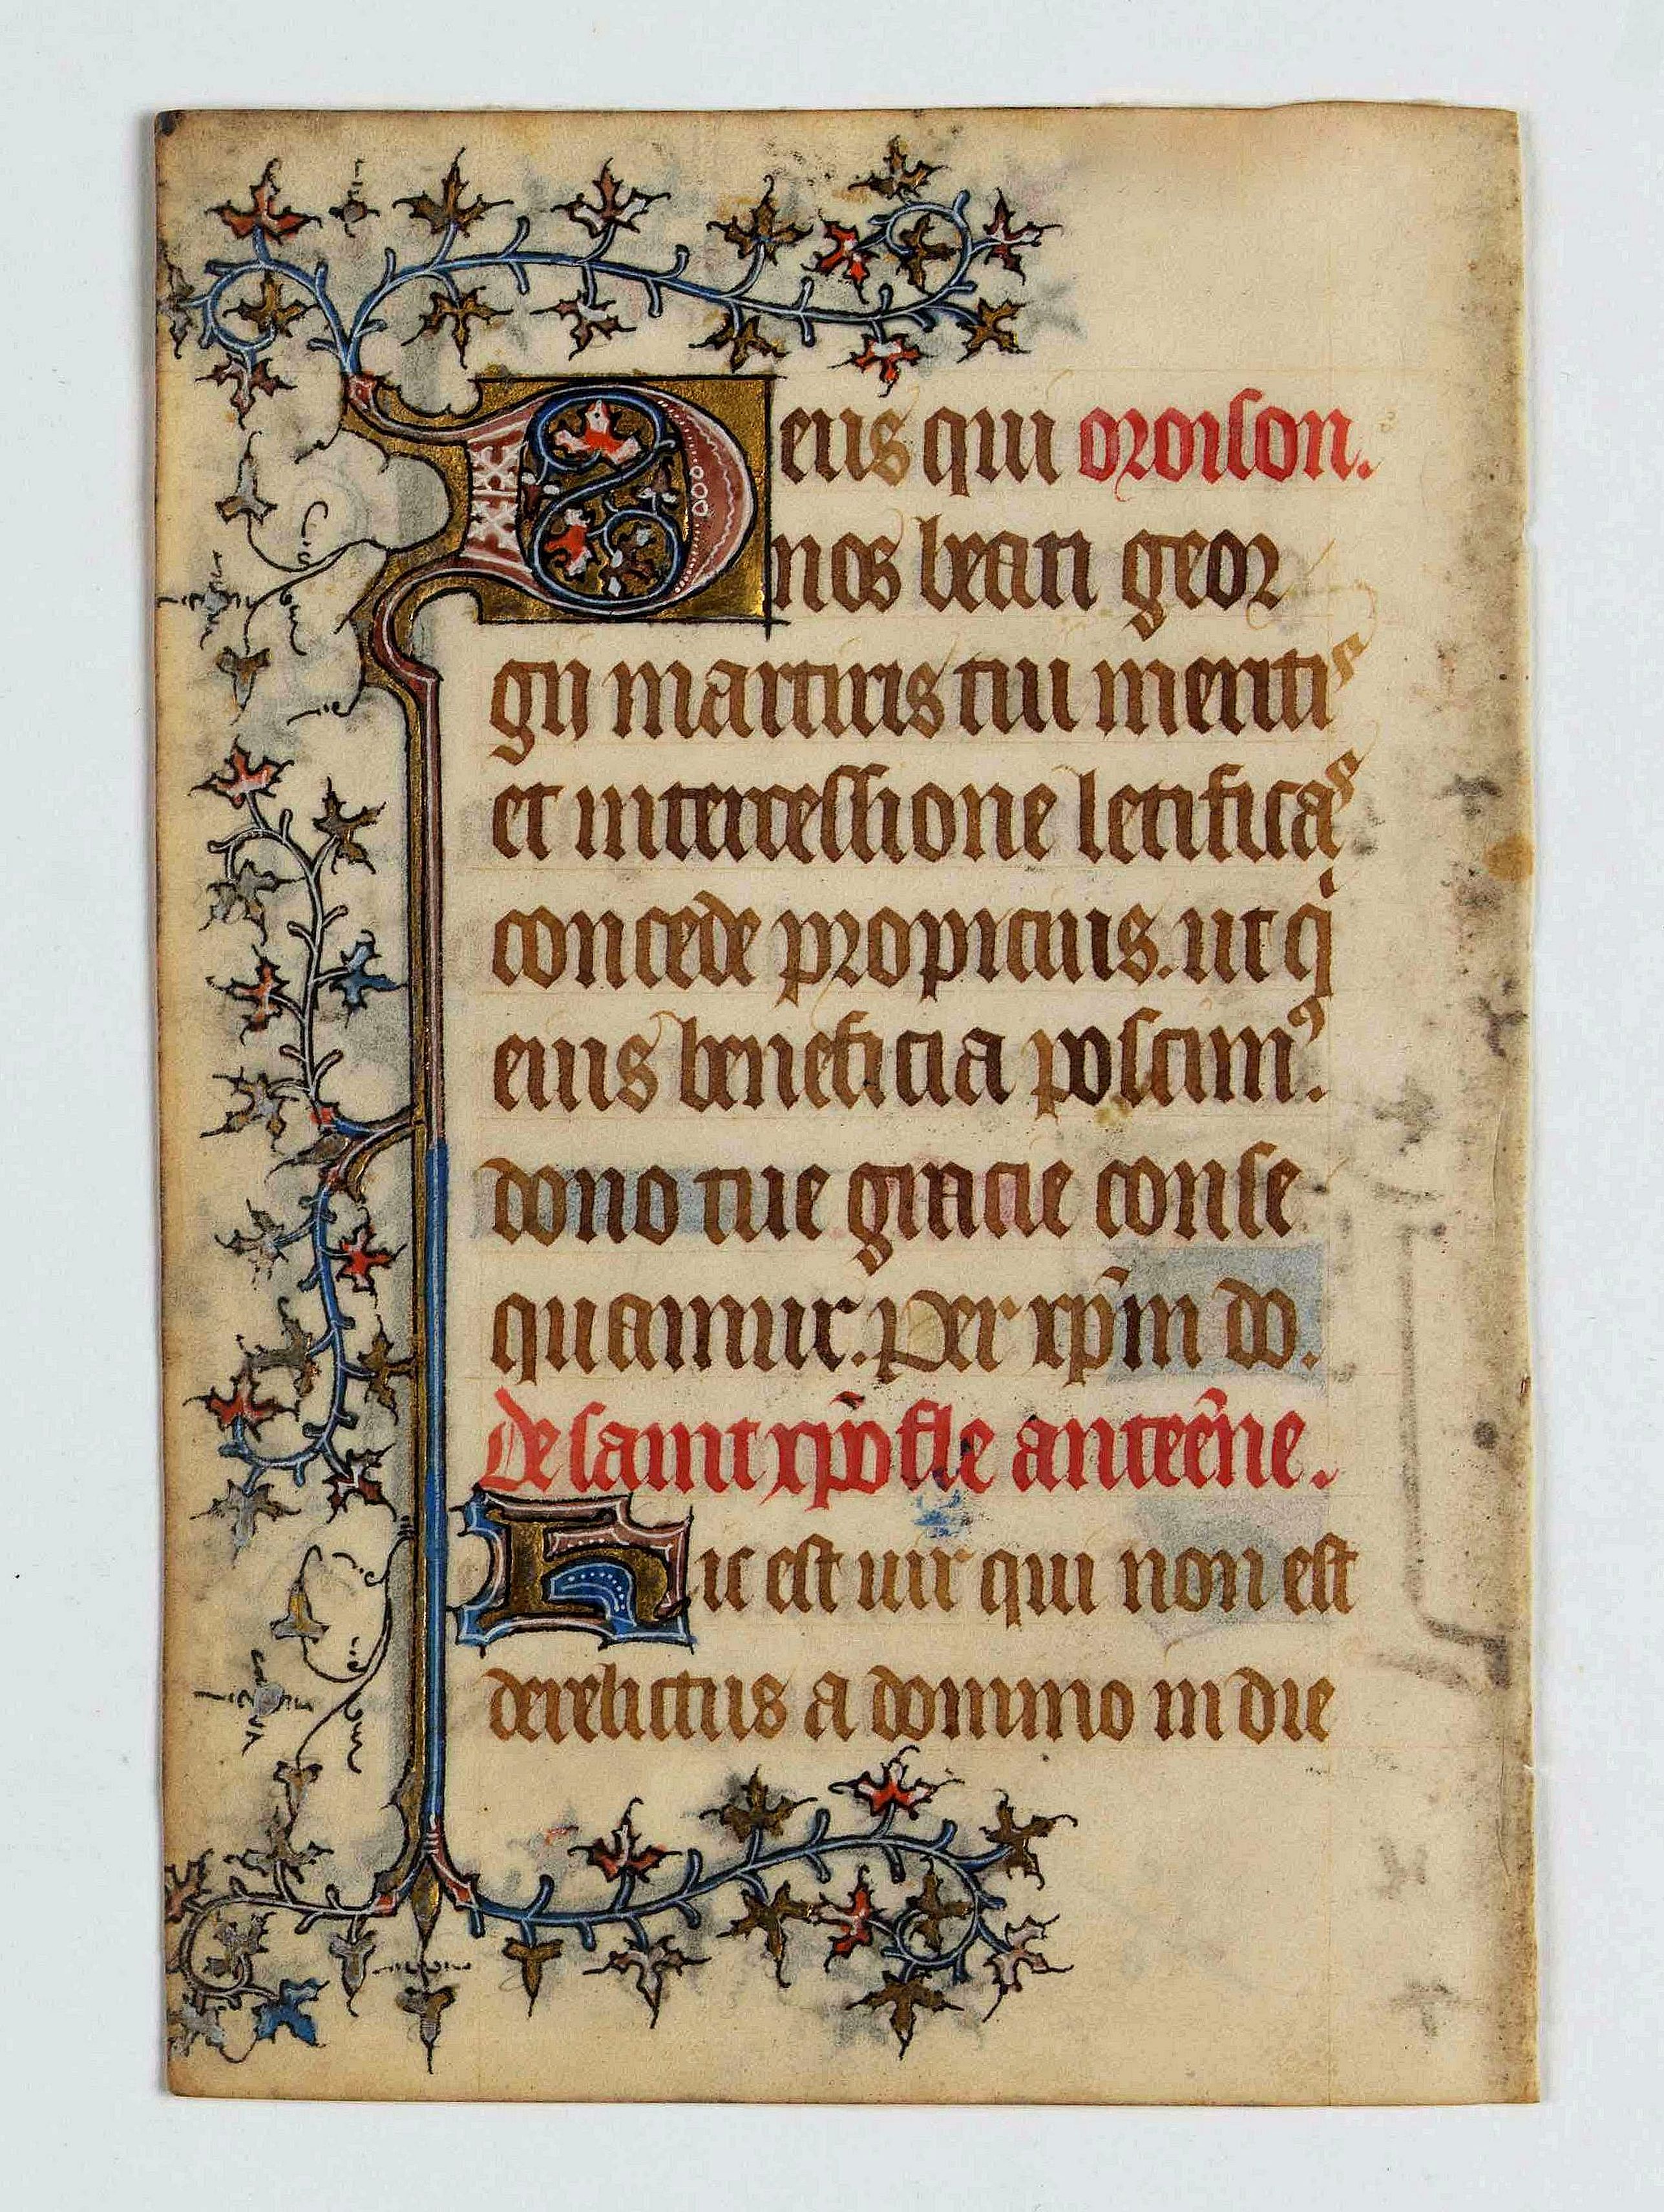 Deus qui oroison.
nos beati geor
gii martiris tui meritis
et intercessione letificas
concede propicius. ut qͥ
eius beneficia poscimꝰ.
dono tue gracie conse
quamur. Per xp̄m do.
De saint xp̄ofle anteẽne.
Hic est uir qui non est
derelictus a domino in die